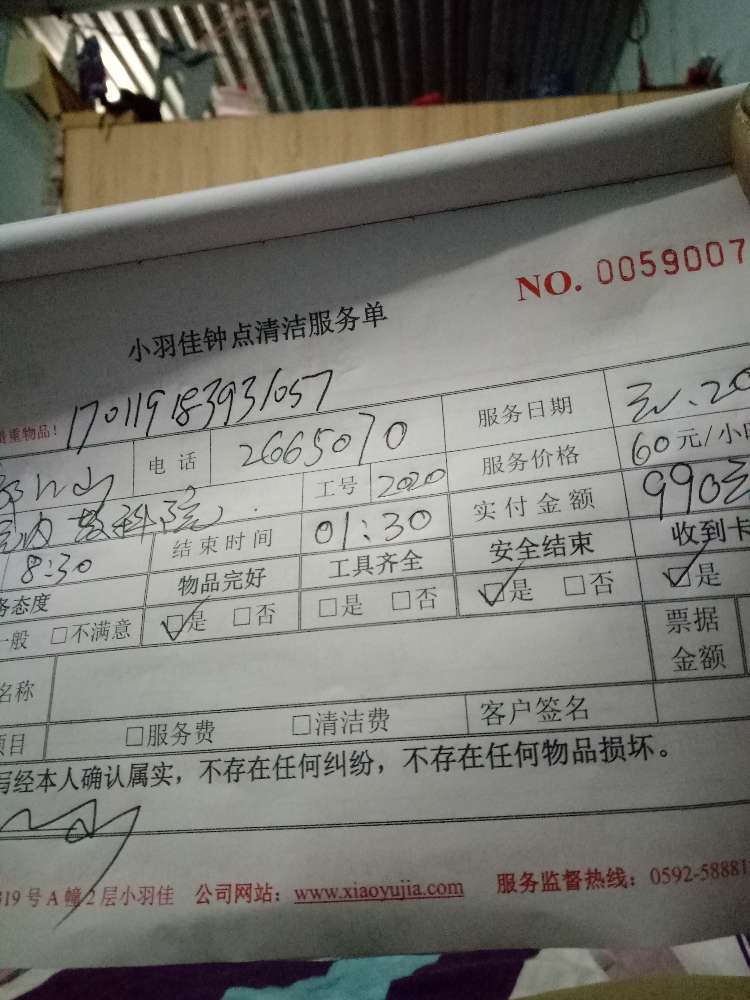 NO. 0059007
小羽佳钟点清洁服务单
重物品! 17011918393/057
电话 2665070 服务日期
教科院 工号 2020 服务价格 60元/小
8:30 结束时间 01:30 实付金额 990元
务态度 物品完好 工具齐全 安全结束 收到卡
一般 □不满意 ☑是 □否 □是 □否 ☑是 □否 ☑是
名称 票据金额
项目 □服务费 □清洁费 客户签名
写经本人确认属实，不存在任何纠纷，不存在任何物品损坏。
319号A幢2层小羽佳 公司网站：www.xiaoyujia.com 服务监督热线：0592-58881